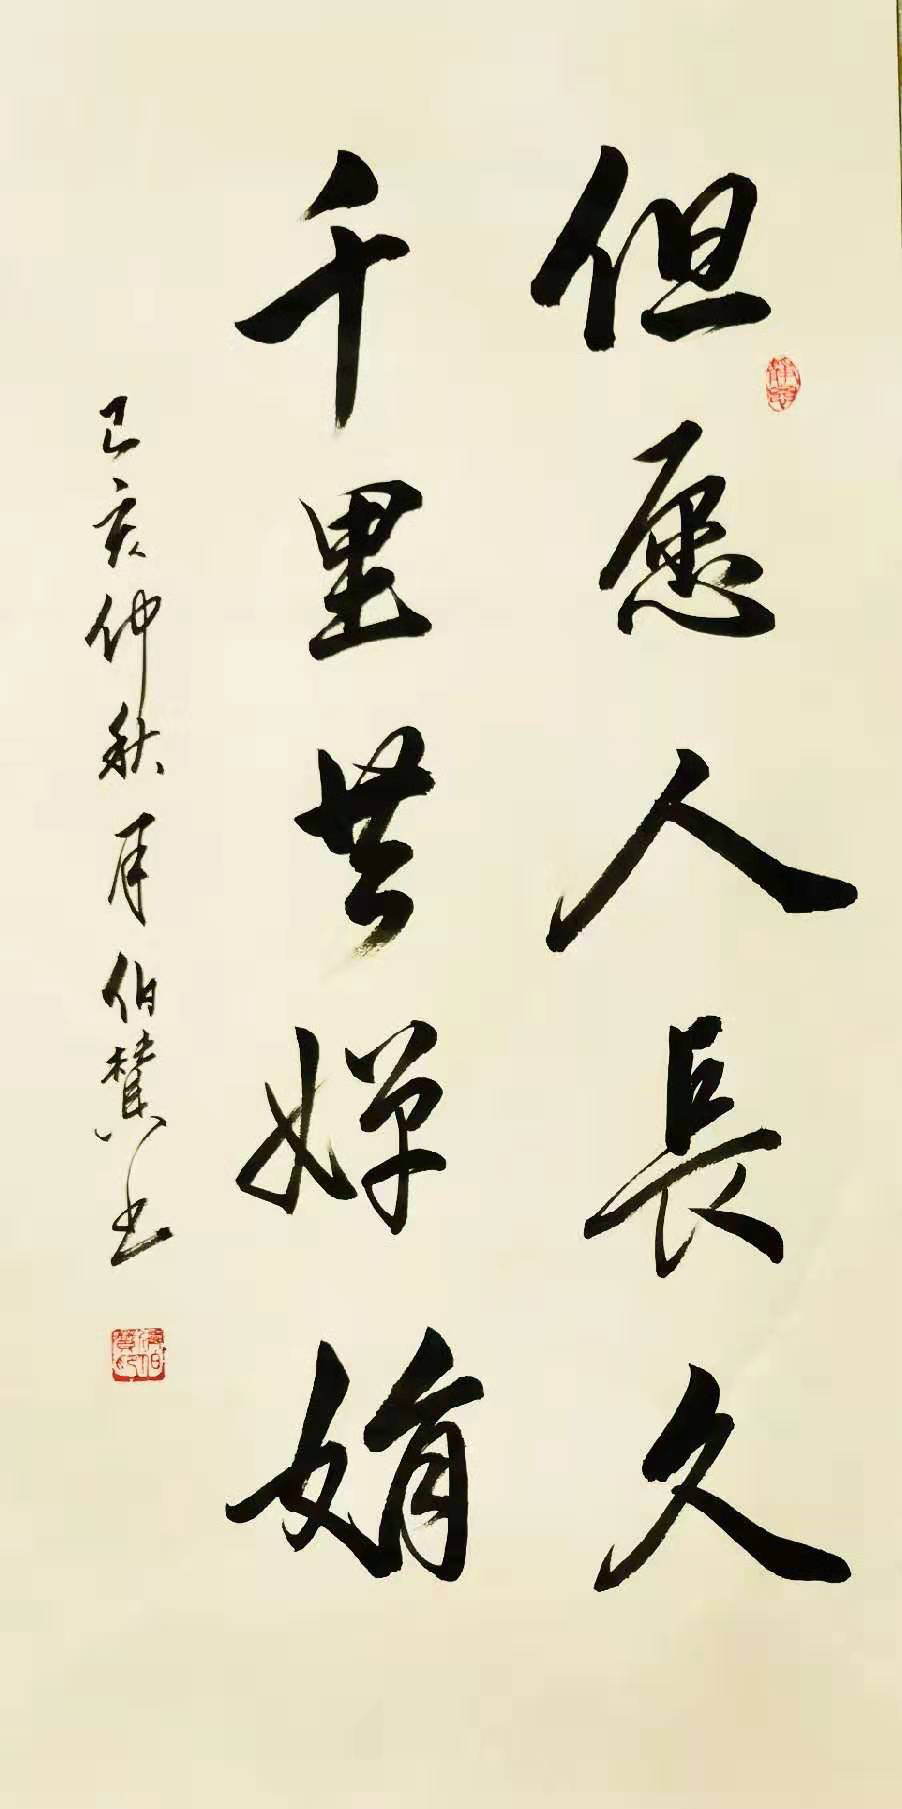 但愿人長久
千里共嬋娟
己亥仲秋月伯贊书